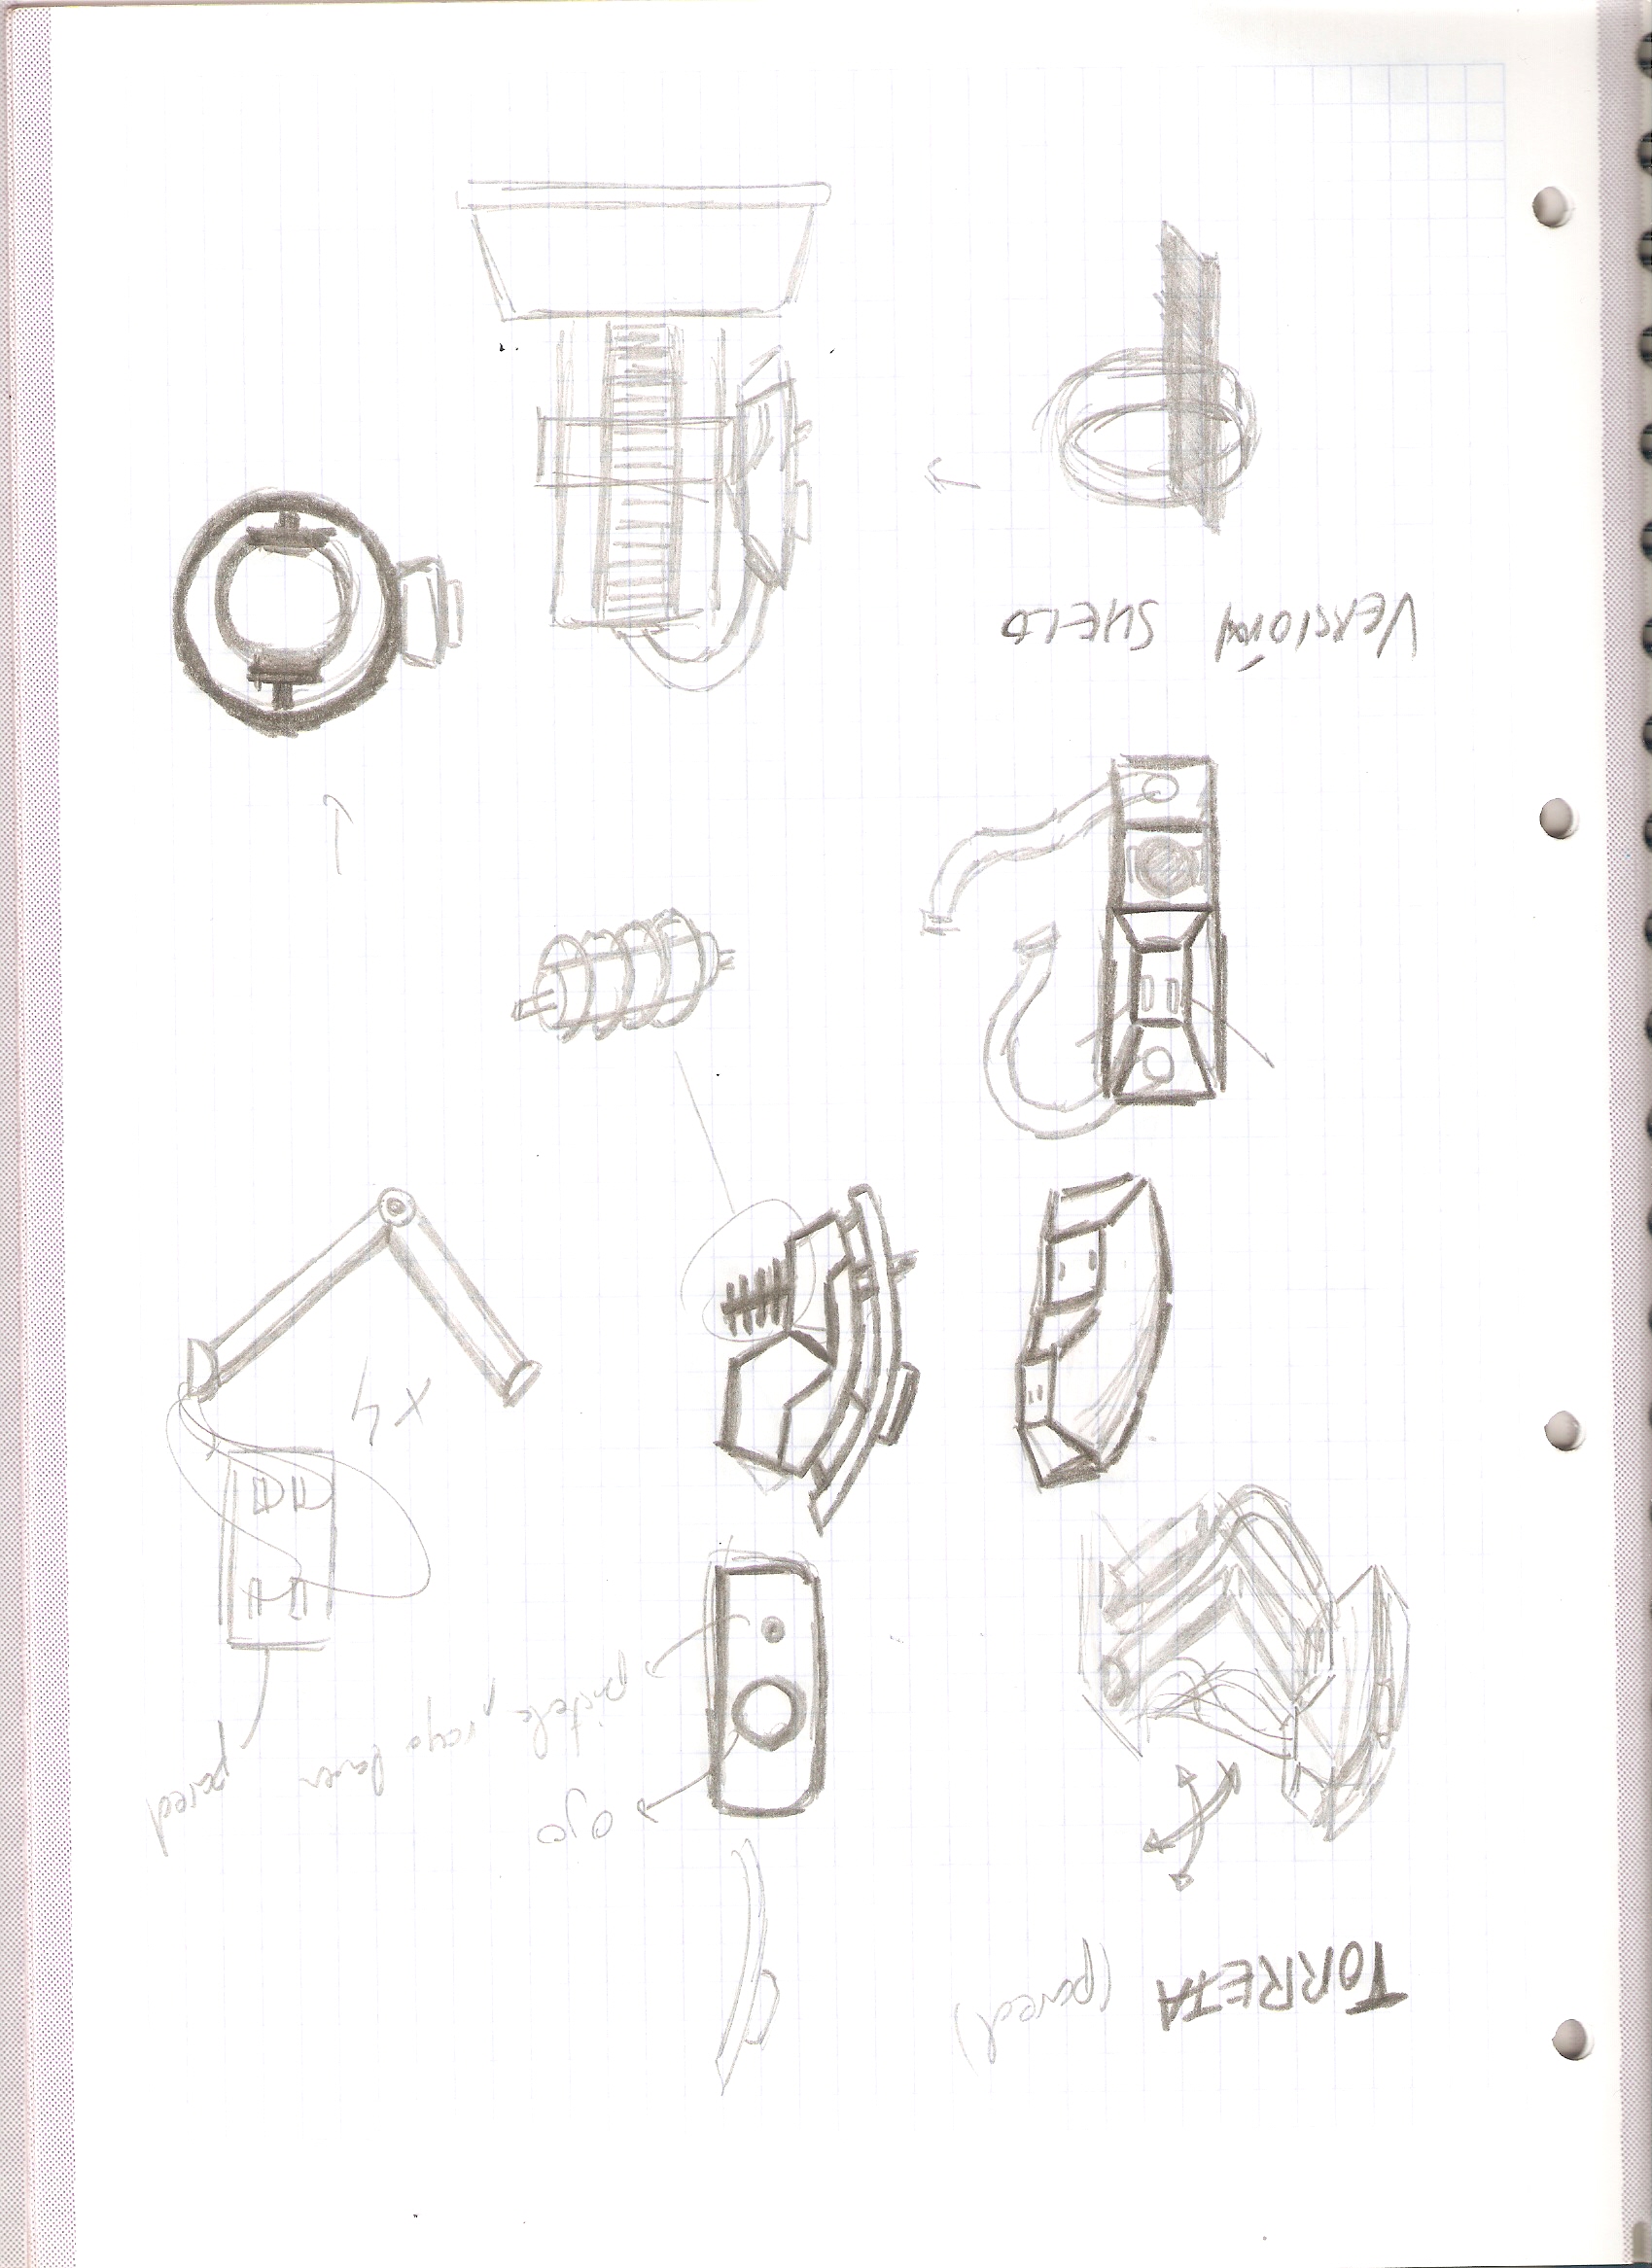 TORRETA (pared)
ojo
pistola, rayo laser
pared
x4
VERSIÓN SUELO